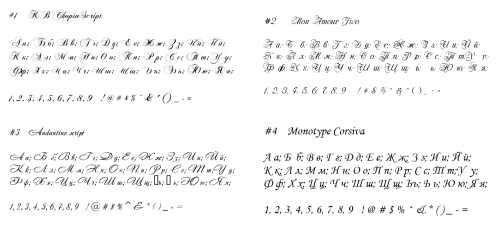 #1 K B Chopin Script
Аа; Бб; Вв; Гг; Дд; Ее; Жж; Зз; Ии; Йй;
Кк; Лл; Мм; Нн; Оо; Пп; Рр; Сс; Тт; Уу;
Фф; Хх; Цц; Чч; Шш; Щщ; Ъъ; Ьь; Юю; Яя;
1, 2, 3, 4, 5, 6, 7, 8, 9 ! @ # $ % ^ & * ( ) _ - =
#2 Mon Amour Two
Аа; Бб; Вв; Гг; Дд; Ее; Жж; Зз; Ии; Йй;
Кк; Лл; Мм; Нн; Оо; Пп; Рр; Сс; Тт; Уу;
Фф; Хх; Цц; Чч; Шш; Щщ; ъ; ь; Юю; Яя;
1, 2, 3, 4, 5, 6, 7, 8, 9 ! # $ % & ^ ( ) _ - =
#3 Andantino script
Аа; Бб; Вв; Гг; Дд; Ее; Жж; Зз; Ии; Йй;
Кк; Лл; Мм; Нн; Оо; Пп; Рр; Сс; Тт; Уу;
Фф; Хх; Цц; Чч; Шш; Щщ; ъ; ь; Юю; Яя;
1, 2, 3, 4, 5, 6, 7, 8, 9 ! @ # $ % ^ & * ( ) _ - =
#4 Monotype Corsiva
Аа; Бб; Вв; Гг; Дд; Ее; Жж; Зз; Ии; Йй;
Кк; Лл; Мм; Нн; Оо; Пп; Рр; Сс; Тт; Уу;
Фф; Хх; Цц; Чч; Шш; Щщ; Ъъ; Ьь; Юю; Яя;
1, 2, 3, 4, 5, 6, 7, 8, 9 ! @ # $ % ^ & * ( ) _ - =